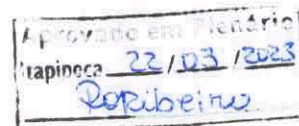 Aprovado em Plenário
Itapipoca 22/03/2023
RoRibeiro